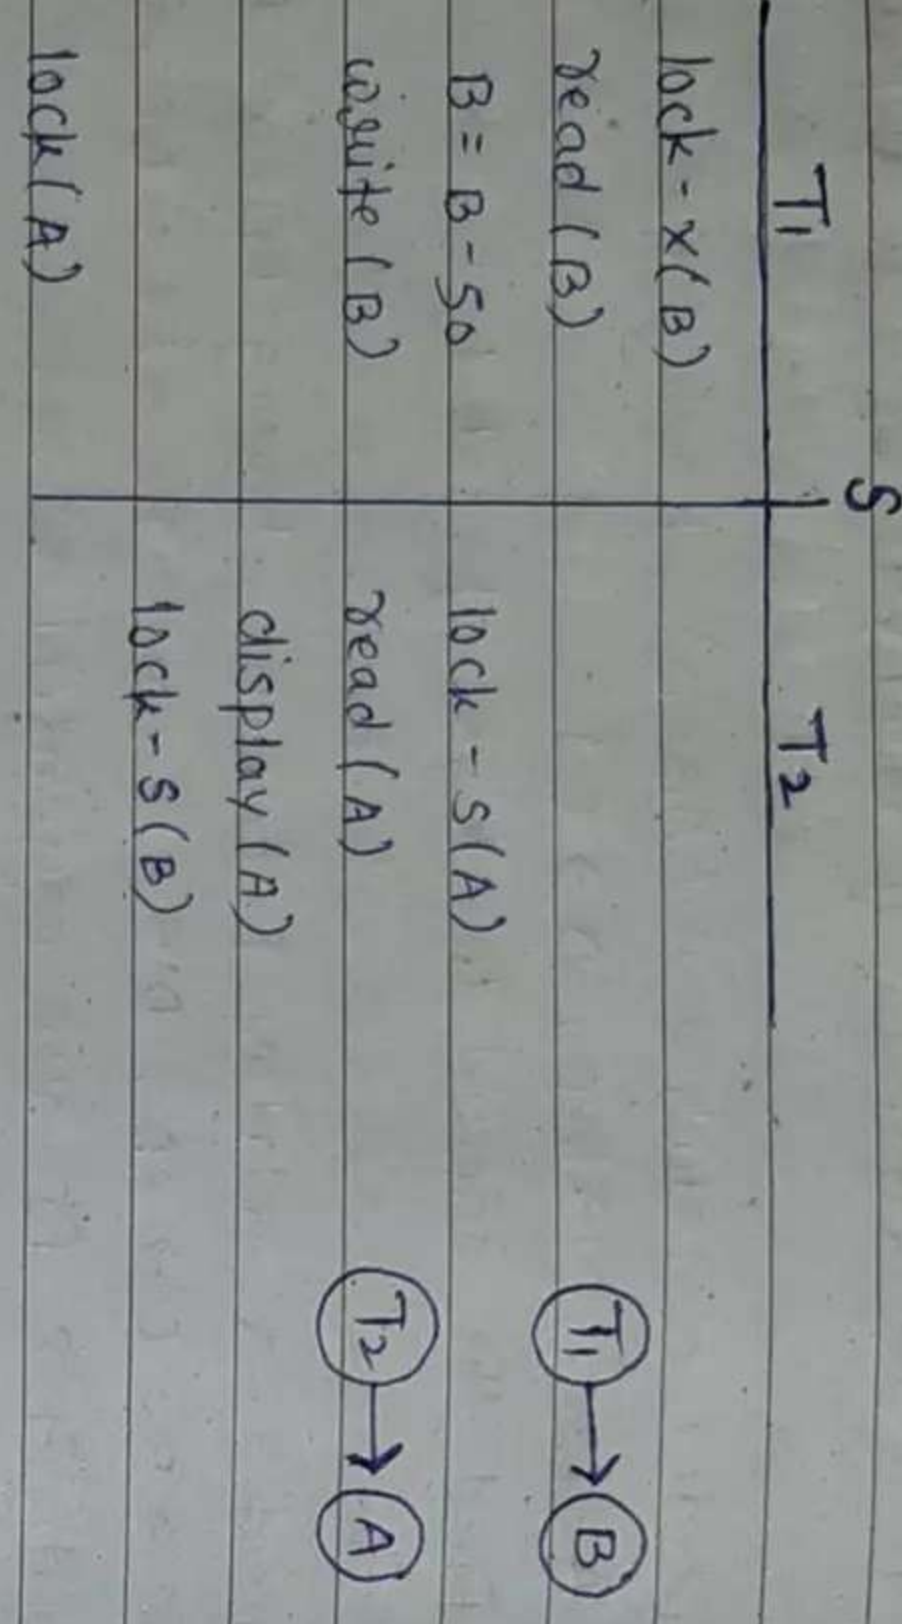 S
T1 T2
lock-X(B)
read(B)
B = B - 50 lock-S(A)
write(B) read(A)
display(A)
lock-S(B)
lock(A)
T1 → B
T2 → A